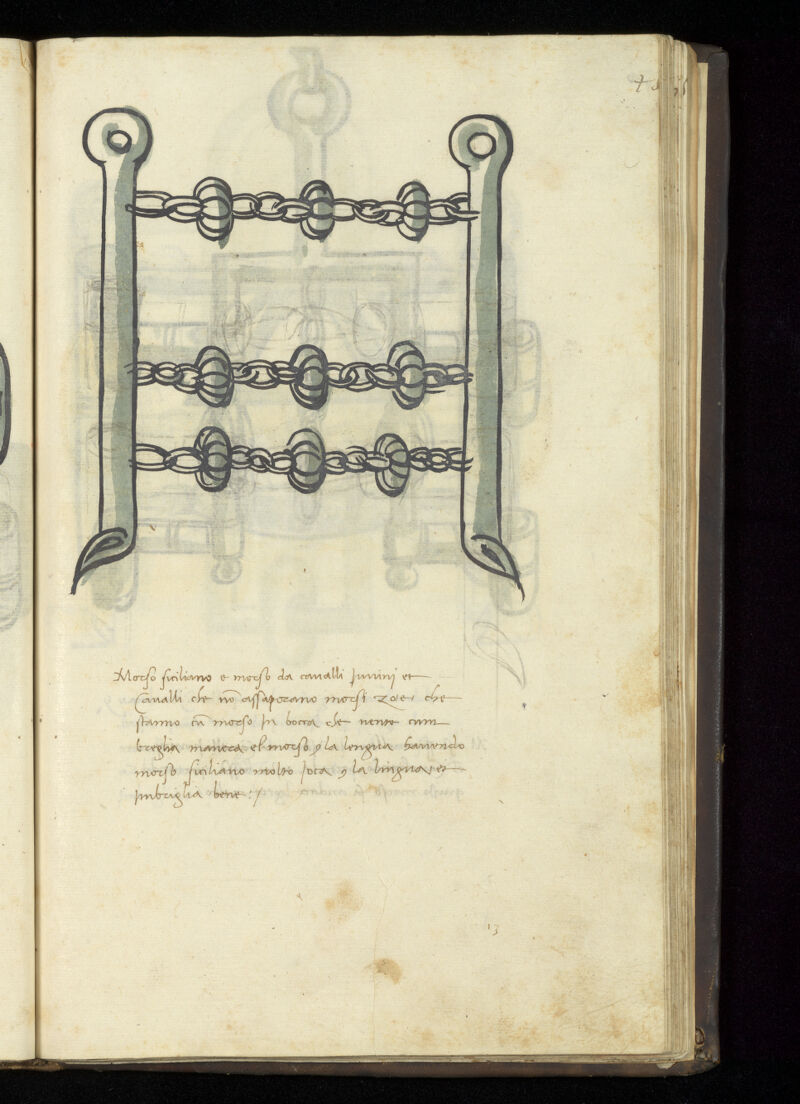 Morso siciliano e morso da cavalli Juvinj et
Cavalli che nō assaporano morsi zoe, che
stanno cū morso in bocca che niente cum
breglia manera el morso ꝑ la lengua havendo
morso siciliano molto joca ꝑ la lingua, et
Imbriglia bene :/
13